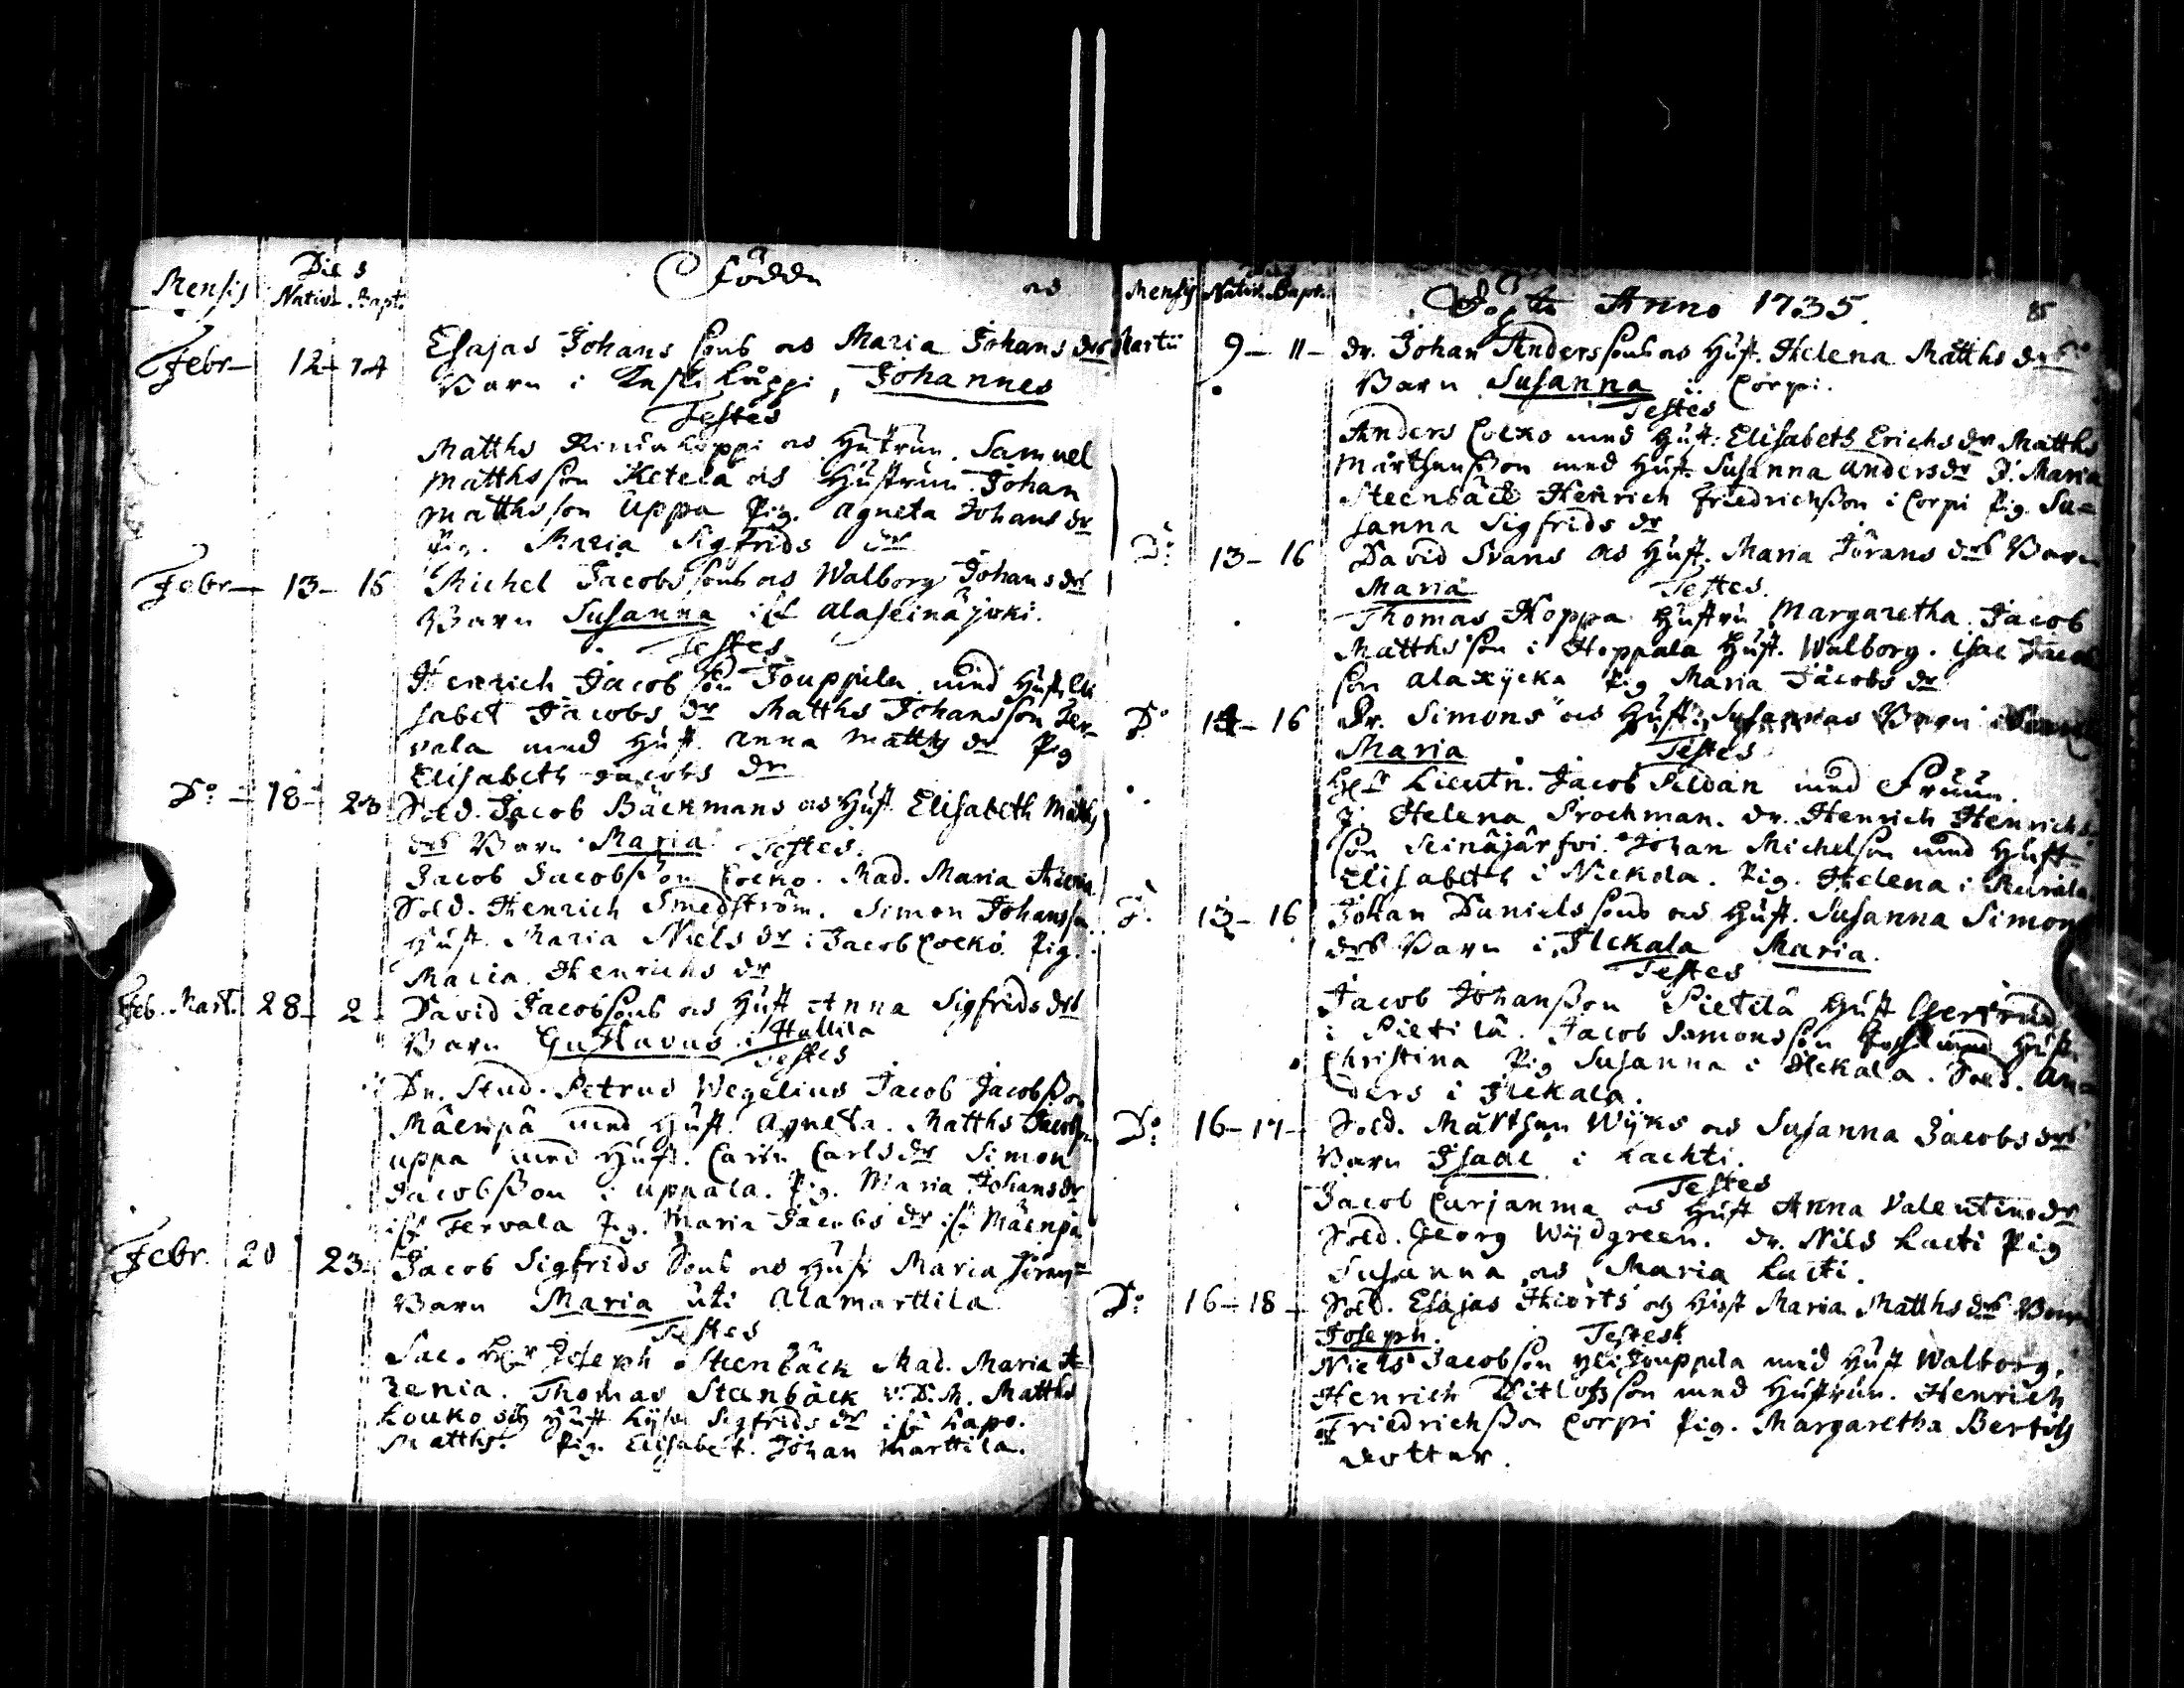 Mensis Dies Nativ. Bapt. Födde och
Febr. 12 14 Esajas Johans sons och Maria Johans drs
Barn i Johannes
Testes
Matths och Hustrun. Samuel
Matthsson Ketela och Hustrun. Johan
Matthsson Uppa Pig. Agneta Johans dr
Pig. Maria Sigfrids dr
Febr. 13 - 16 Michel Jacobs sons och Walborg Johans drs
Barn Susanna ifr Alaseinäjoki.
Testes
Henrich Jacobsson Jouppila med Hust. Eli
sabet Jacobs dr Matths Johansson Ter-
vala med Hust. Anna Matths dr Pig
Elisabeth Jacobs dr
Do - 18 - 23 Sold. Jacob Bäckmans och Hust. Elisabeth Matths
drs Barn Maria Testes.
Jacob Jacobsson Locko. Mad. Maria
Sold. Henrich Smedström. Simon Johansson
Hust. Maria Niels dr i Jacob Locko. Pig.
Maria Henrichs dr
Feb. Mart. 28 - 2 David Jacobsons och Hust Anna Sigfrids drs
Barn Gustavus i Hallila
Testes
Dn. Stud. Petrus Wegelius Jacob Jacobsson
Mäenpä med Hust. Agneta. Matths Jacobsson
uppa med Hust. Carin Carls dr Simon
Jacobsson i uppala. Pig. Maria Johans dr
ifr Tervala Pig. Maria Jacobs dr ifr Mäenpä
Febr. 20 23 Jacob Sigfrids Sons och Hust Maria
Barn Maria uti Alamarttila
Testes
Sac. Hr Joseph Steenbäck Mad. Maria A-
renia. Thomas Steenbäck V.D.M. Matths
Louko och Hust Lysa Sigfrids dr ifr Lapo.
Matths. Pig. Elisabet. Johan Marttila.
Mensis Nativ. Bapt. Döpte Anno 1735. 85
Martii 9 - 11 - dr. Johan Anderssons och Hust. Helena Matths drs
Barn Susanna i Corpi.
Testes
Anders Locko med Hust: Elisabeth Erichs dr Matths
Mårthensson med Hust. Susanna Anders dr J. Maria
Steenbäck Henrich Friedrichsson i Corpi Pig. Su=
sanna Sigfrids dr
Do 13 - 16 David Svans och Hust. Maria Jörans drs Barn
Maria Testes.
Thomas Hoppa Hustru Margaretha. Jacob
Matthsson i Hoppala Hust. Walborg. Isac Jacob
son Alakycka Pig Maria Jacobs dr
Do 14 - 16 dr. Simons och Hust. Susannas Barn
Maria Testes
Hr Lieutn. Jacob Peldan med Fruun.
J. Helena Prochman. dr. Henrich Henrichs
son Seinäjärfvi. Johan Michelson med Hust
Elisabeth i Nickola. Pig. Helena i
Do 13 - 16 Johan Daniels sons och Hust. Susanna Simons
drs Barn i Ilckala Maria.
Testes
Jacob Johansson Pietilä Hust Gertrud
i Pietilä. Jacob Simonsson med Hust.
Christina Pig Susanna i Ilckala. Sold. An=
ders i Ilckala.
Do 16 - 17 - Sold. Mårthen Wyks och Susanna Jacobs drs
Barn Isaac i Lachti.
Testes
Jacob Curjanma och Hust Anna Valentins dr
Sold. Georg Wydgreen. dr. Nils Lacti Pig
Susanna och Maria Lacti.
Do 16 - 18 - Sold. Esajas Hiorts och Hust Maria Matths drs Barn
Joseph. Testes
Niels Jacobson yliJouppila med Hust Walborg.
Henrich Ditlofsson med Hustrun. Henrich
Friedrichsson Corpi Pig. Margaretha Bertils
dotter.